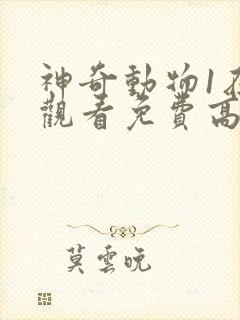 神奇動物1在
觀看免費高
莫雲晚